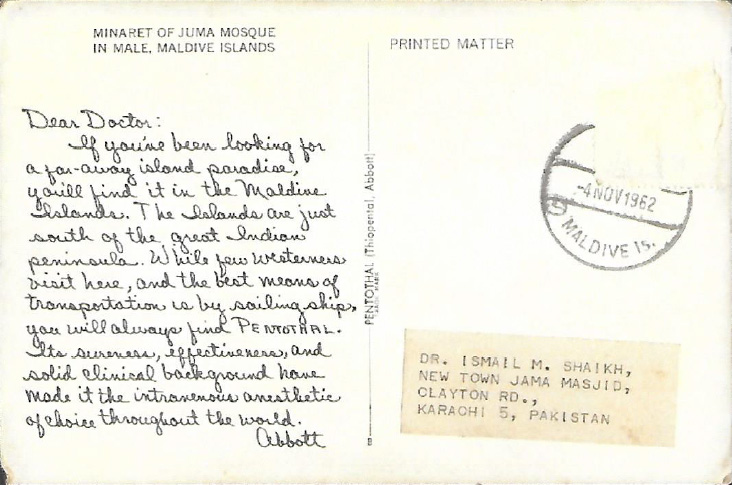 MINARET OF JUMA MOSQUE
IN MALE, MALDIVE ISLANDS
Dear Doctor:
If you've been looking for
a far-away island paradise,
you'll find it in the Maldive
Islands. The Islands are just
south of the great Indian
peninsula. While few westerners
visit here, and the best means of
transportation is by sailing ship,
you will always find PENTOTHAL.
Its sureness, effectiveness, and
solid clinical background have
made it the intravenous anesthetic
of choice throughout the world.
Abbott
PENTOTHAL (Thiopental, Abbott)
PRINTED MATTER
-4 NOV 1962
MALDIVE IS.
DR. ISMAIL M. SHAIKH,
NEW TOWN JAMA MASJID,
CLAYTON RD.,
KARACHI 5, PAKISTAN